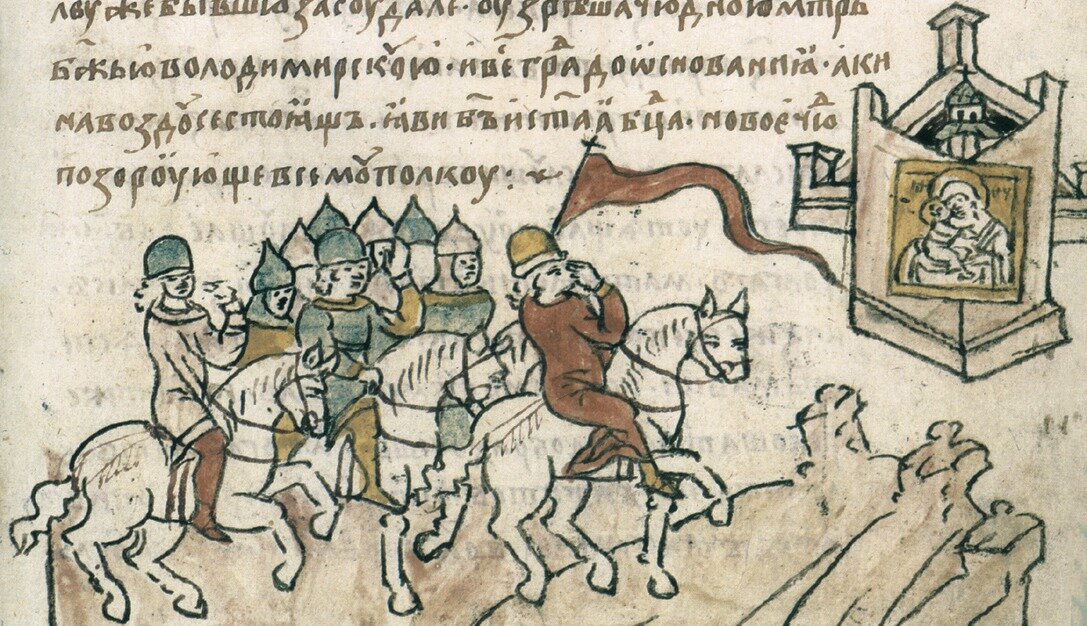 лоу же бывшю за соудале · оузрѣша чюдною мтрь
бжью володимирскоую · и ве градо ѡснованиꙗ · аки
на воздсе стоꙗщь · ꙗви бъ истаꙗ бца · новое чю
позороующе всемоу полкоу ·